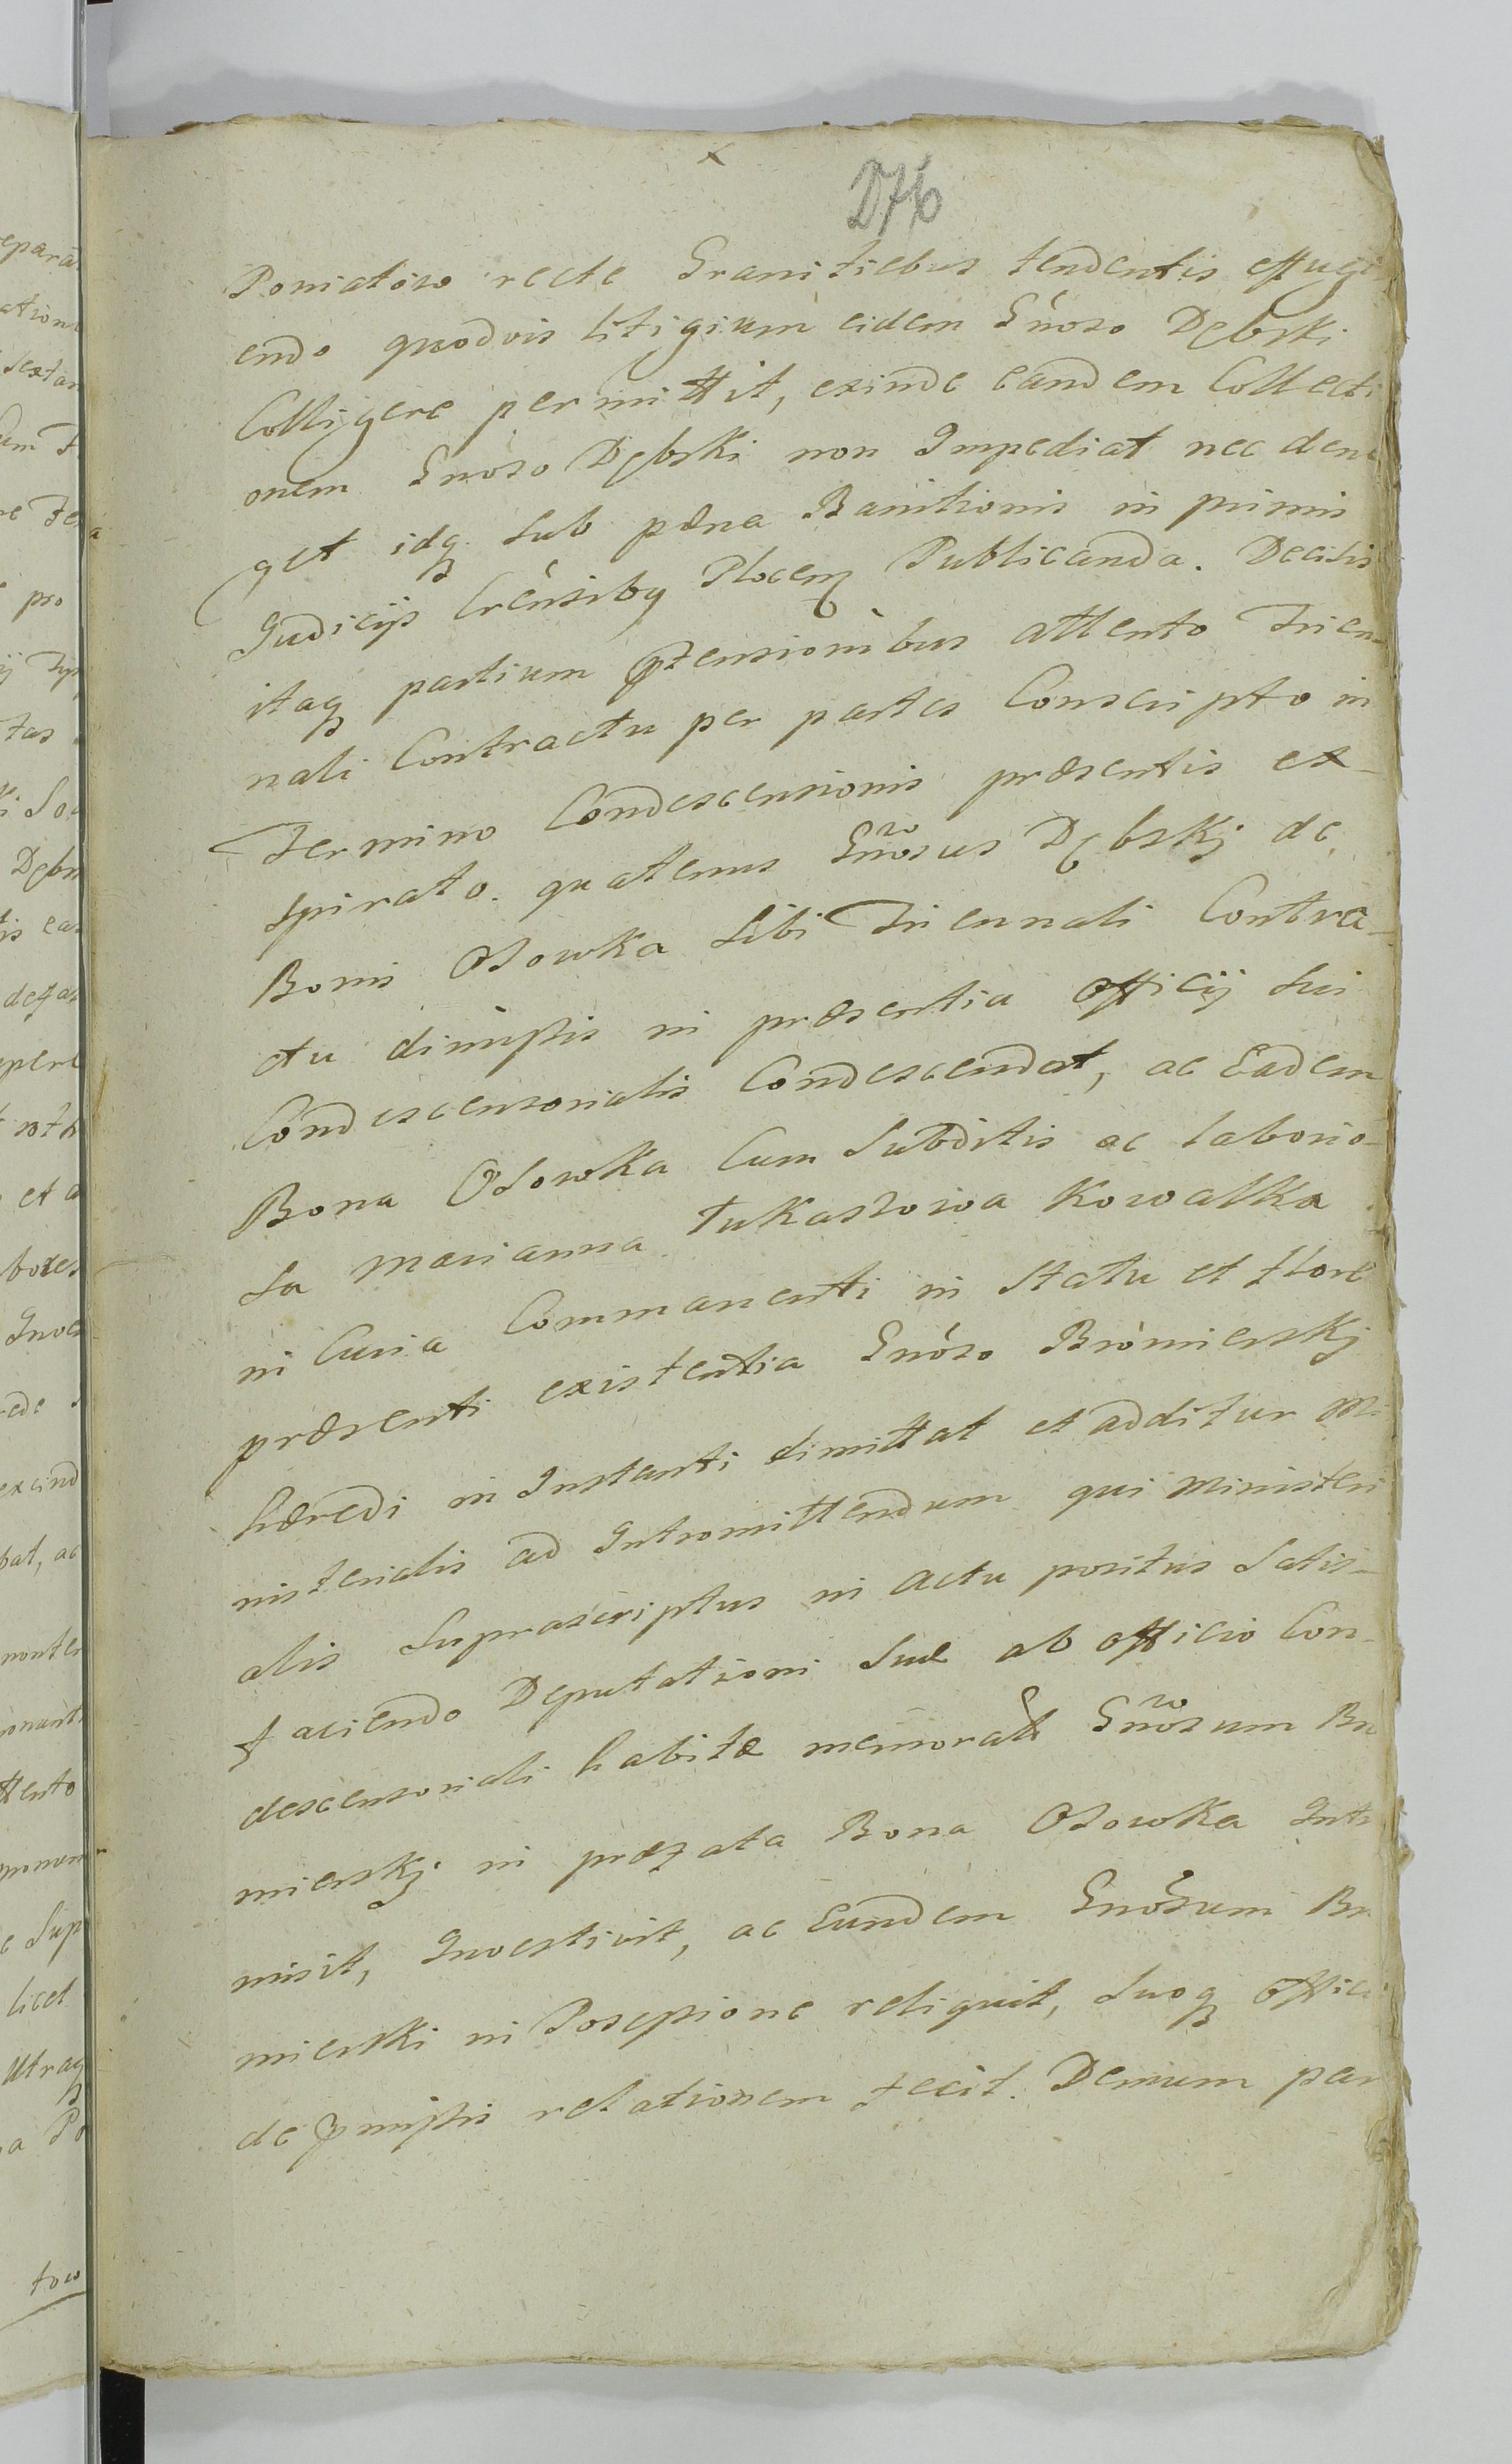 x
276
Poniatowo recte Granitiebus tendentis effugi
endo quodvis litigium eidem Gnoso Dębski
Colligere permittit, exinde eandem Collecti
onem Gnoso Dębski non Impediat nec dene
get idq. sub pæna Banitionis in primis
Judicijs Crensibq Plocen Publicanda. Decisis
itaq partium ptensionibus attento Trien-
nali Contractu per partes Conscripto in
Termino Condescensionis præsentis ex-
spirato. quatenus Gnosus Dębskj de
Bonis Osowka sibi Triennali Contra-
ctu dimissis in præsentia officij sui
Condescensorialis Condescendat, ac Eadem
Bona Osowka Cum Subditis ac laborio-
sa Marianna Łukaszowa Kowalka
in Curia Commanenti in Statu et flore
præsenti existentia Gnoso Bromierskj
hæredi in Instanti dimittat et additur Mi
nisterialis ad Intromittendum qui Ministeri
alis Suprascriptus in actu positus Satis-
faciendo Deputationi suæ ab officio Con-
descensoriali habitæ memorati Gnosum Bro
mierskj in præfata Bona Osowka Intro
misit, Investivit, ac Eundem Gnosum Bro
mierski in Posessione reliquit, suoq officio
de pmissis relationem fecit. Demum par